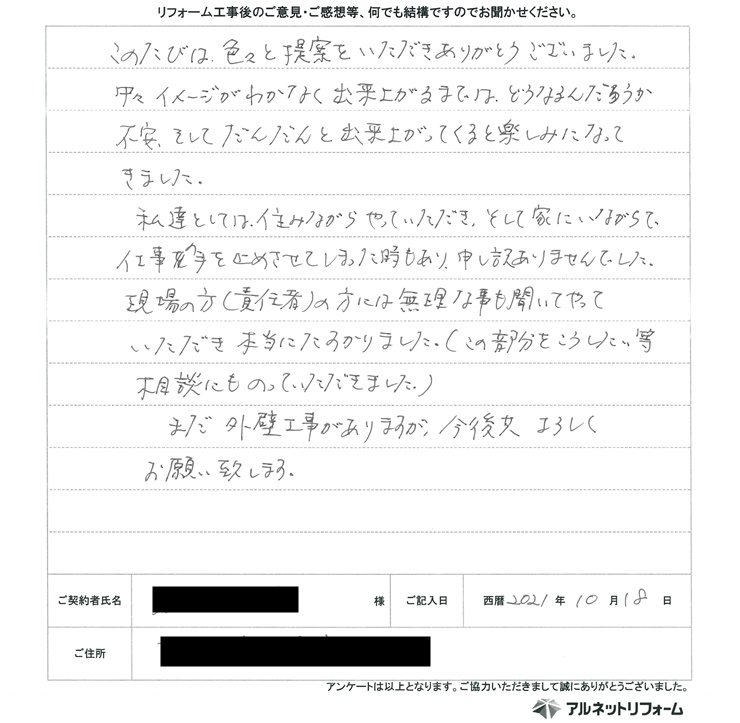 リフォーム工事後のご意見・ご感想等、何でも結構ですのでお聞かせください。
このたびは、色々と提案をいただきありがとうございました。
中々イメージがわかなく出来上がるまでは、どうなるんだろうか
不安、そしてだんだんと出来上がってくると楽しみになって
きました。
私達としては、住みながらやっていただき、そして家にいながらで、
仕事の手を止めさせてしまった時もあり、申し訳ありませんでした。
現場の方(責任者)の方には無理な事も聞いてやって
いただき本当にたすかりました。(この部分をこうしたい等
相談にものっていただきました。)
まだ外壁工事がありますが、今後共よろしく
お願い致します。
ご契約者氏名 様 ご記入日 西暦2021年10月18日
ご住所
アンケートは以上となります。ご協力いただきまして誠にありがとうございました。
アルネットリフォーム